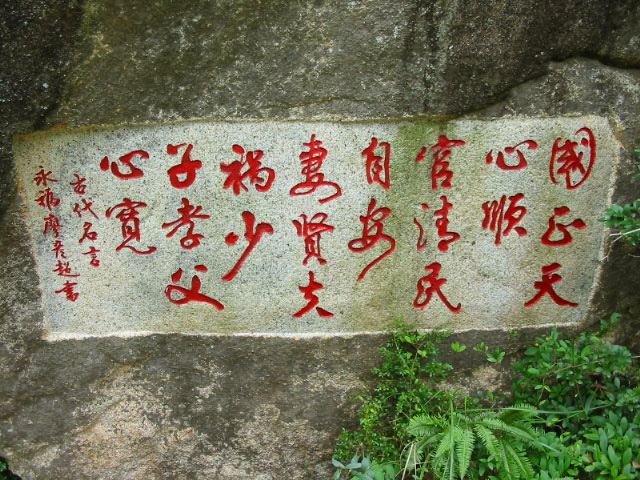 國正天
心順
官清民
自安
妻贤夫
祸少
子孝父
心寬
古代名言
永福廖彦超书